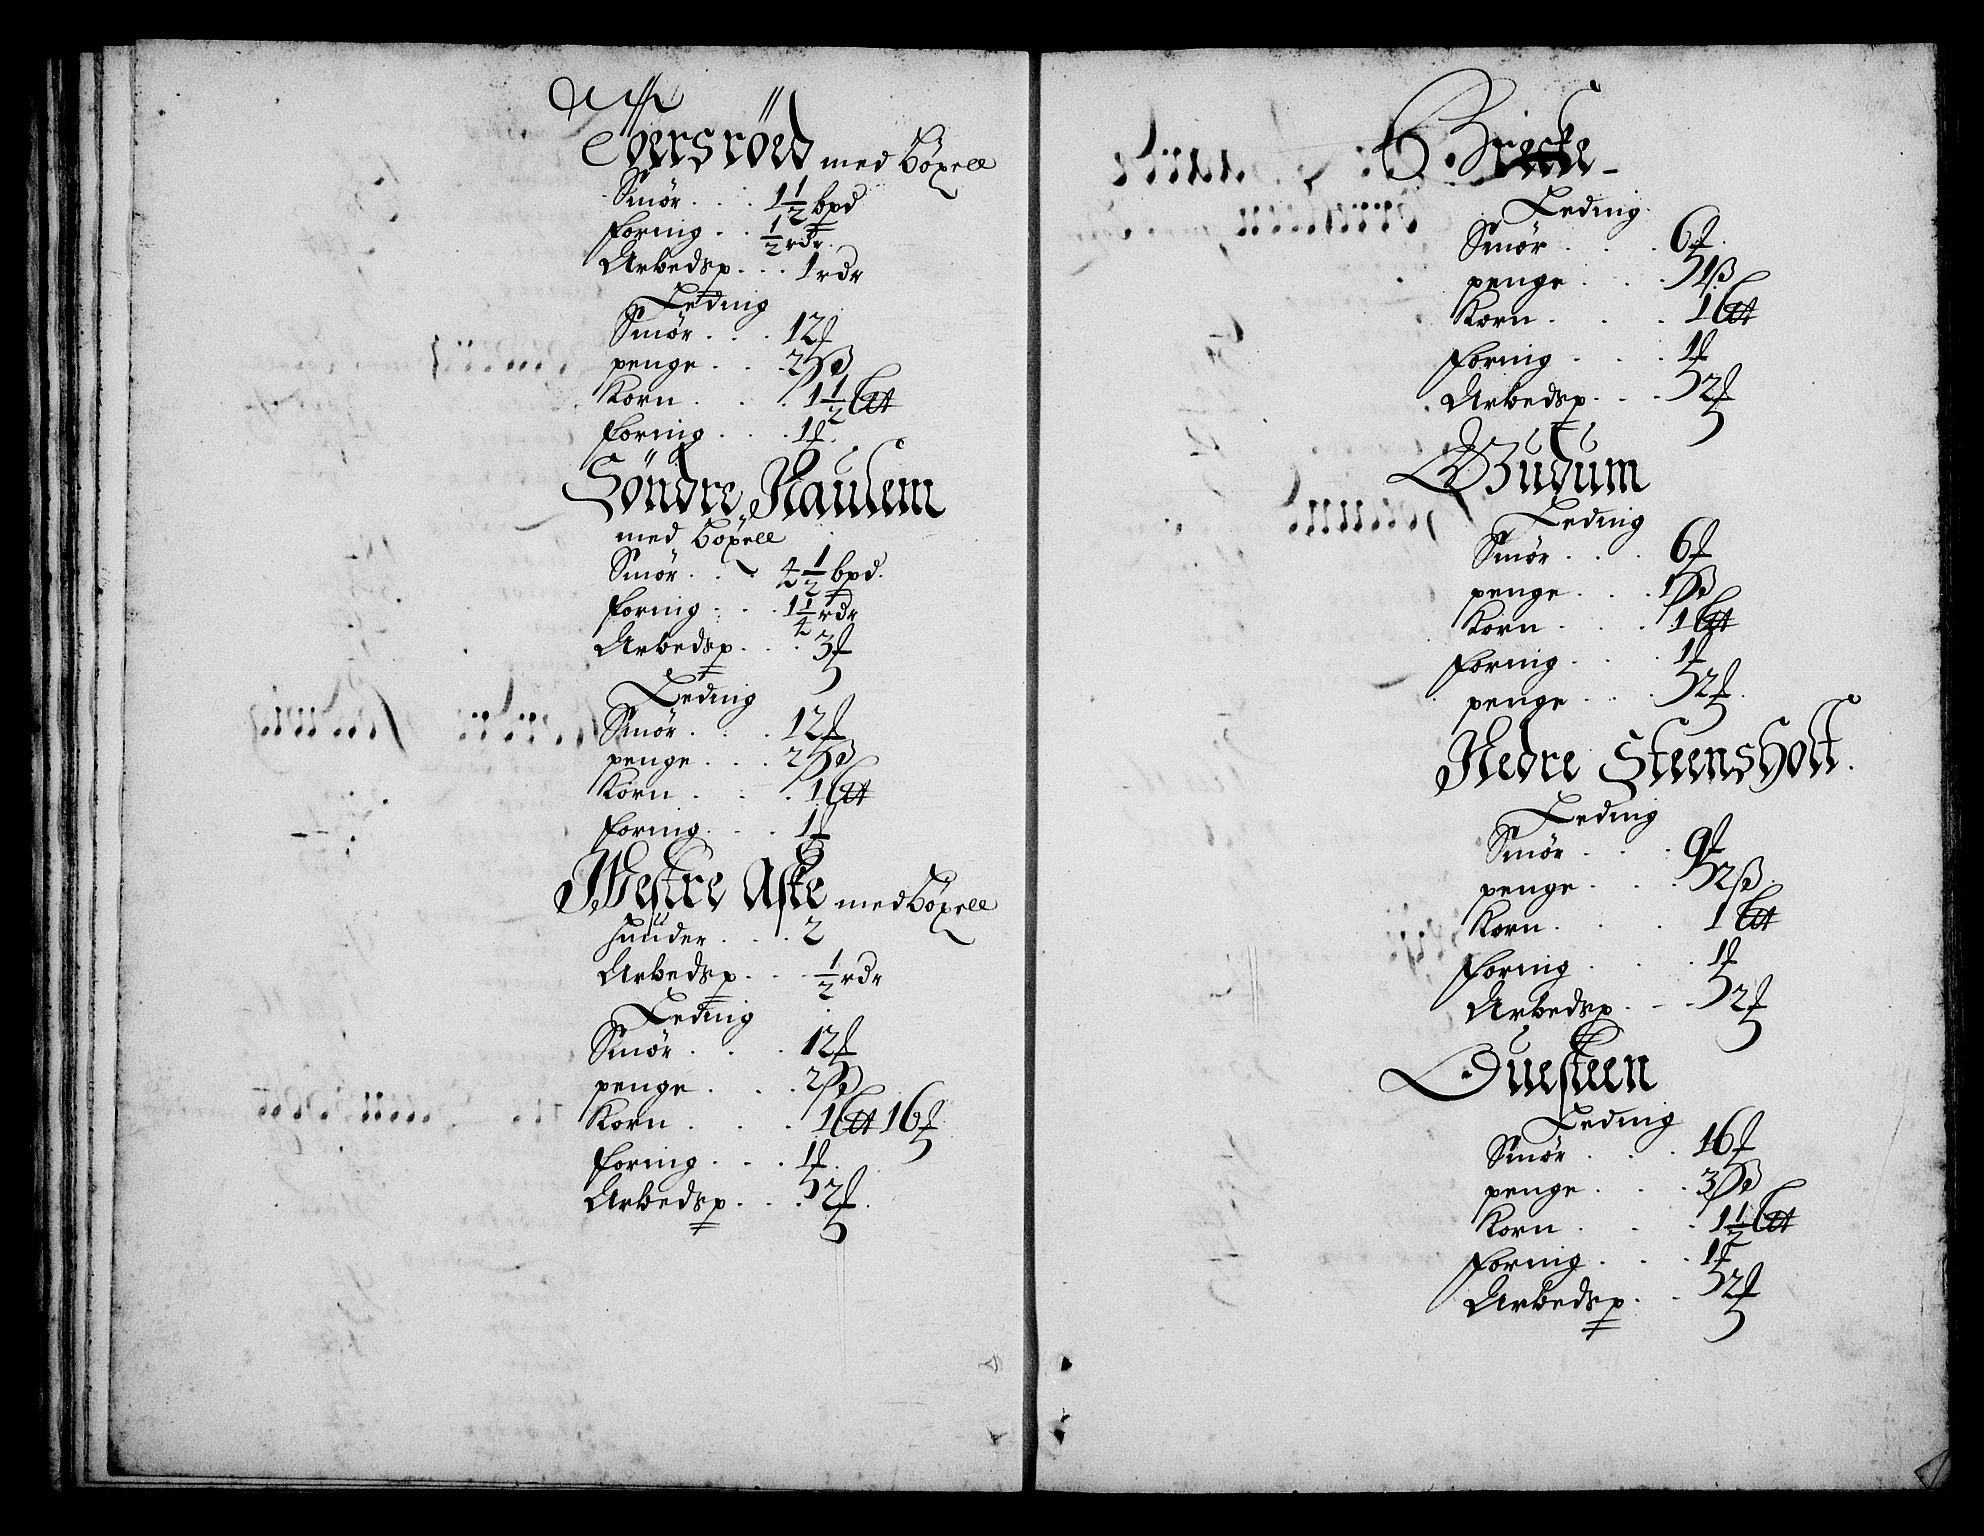 Aff
Efversröed med Böxell
Smör . . . 1 1/2 bpd
foring . . 1/2 rdr.
Arbedsp . . . 1 rdr
Leding
Smör . . . 12 ſ
penge . . . 2 ß
Korn . . . 1 1/2 Lttt
foring . . . 1 ſ.
Söndre Naulem
med Böxell
Smör . . . 4 1/2 bpd.
foring . . . 1 1/4 rdr
Arbedsp . . . 3 ſ
Leding
Smör . . . 12 ſ
penge . . . 2 ß
Korn . . . 1 Lttt
foring . . . 1 ſ
Westre Aske med Böxell
Huüder . . . 2
Arbedsp . . . 1/2 rdr
Leding
Smör . . . 12 ſ
penge . . . 2 ß
Korn . . . 1 Lttt 16 ſ
foring . . . 1 ſ.
Arbedsp . . . 2 ſ.
Brecke
Leding
Smör . . . 6 ſ.
penge . . . 1 ß
Korn . . . 1 Lttt
foring . . . 1 ſ
Arbedsp . . . 2 ſ
Gudum
Leding
Smör . . . 6 ſ
penge . . . 1 ß
Korn . . . 1 Lttt
foring . . . 1 ſ
penge . . . 2 ſ.
Nedre Steensholt.
Leding
Smör . . . 9 ſ
penge . . . 2 ß.
Korn . . . 1 Lttt
foring . . . 1 ſ
Arbedsp . . . 2 ſ
Duesteen
Leding
Smör . . . 16 ſ
penge . . . 3 ß
Korn . . . 1 1/2 Lttt
foring . . . 1 ſ
Arbedsp . . . 2 ſ